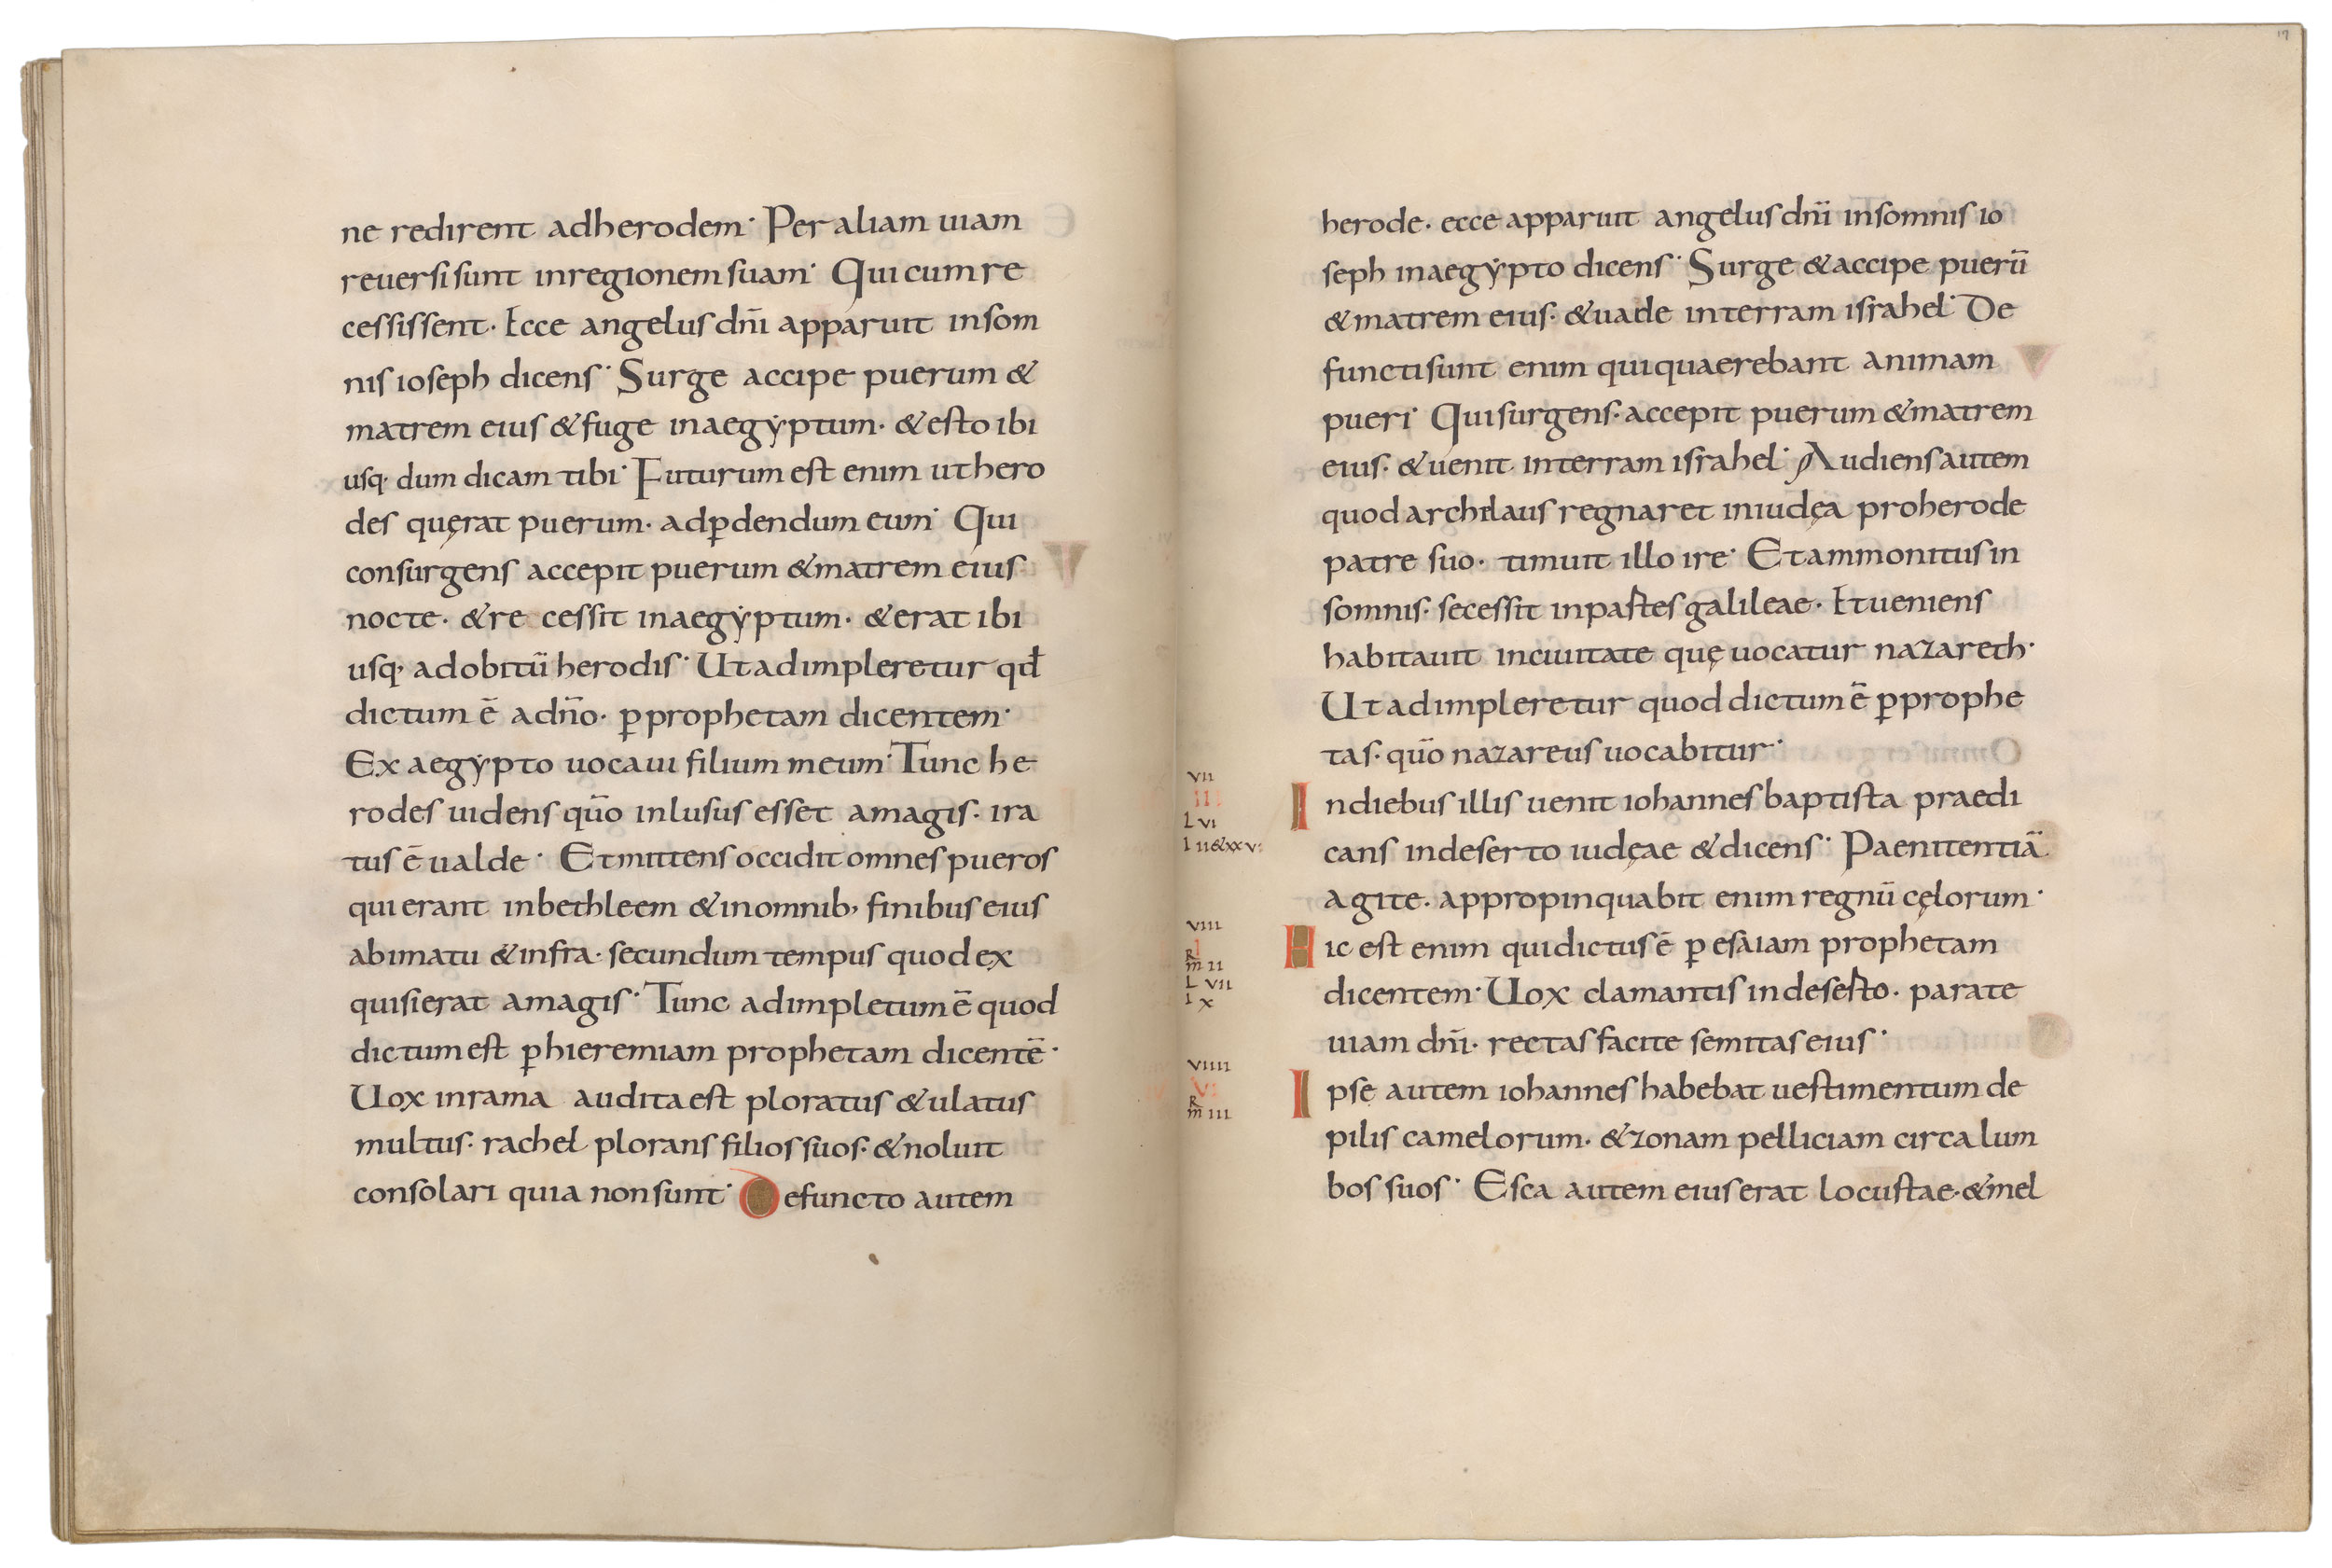 ne redirent adherodem· Per aliam uiam
reuersi sunt inregionem suam· Qui cum re
cessissent· Ecce angelus dn̄i apparuit insom
nis ioseph dicens· Surge accipe puerum &
matrem eius & fuge inaegẏptum· & esto ibi
usq· dum dicam tibi· Futurum est enim ut hero
des quęrat puerum· adꝑdendum eum· Qui
consurgens accepit puerum & matrem eius
nocte· & re cessit inaegẏptum· & erat ibi
usq· adobitū herodis· Ut adimpleretur qd̄
dictum ē adn̄o· ꝑ prophetam dicentem·
Ex aegẏpto uocaui filium meum· Tunc he
rodes uidens qūo inlusus esset amagis· ira
tus ē ualde· Et mittens occidit omnes pueros
qui erant inbethleem & inomnib; finibus eius
abimatu & infra· secundum tempus quod ex
quisierat amagis· Tunc adimpletum ē quod
dictum est ꝑ hieremiam prophetam dicentē·
Uox inrama audita est ploratus & ulatus
multus· rachel plorans filios suos· & noluit
consolari quia non sunt· Defuncto autem
17
herode· ecce apparuit angelus dn̄i insomnis io
seph inaegẏpto dicens· Surge & accipe puerū
& matrem eius· & uade interram israhel· De
functi sunt enim qui quaerebant animam
pueri· Qui surgens· accepit puerum & matrem
eius· & uenit interram israhel· Audiens autem
quod archelaus regnaret iniudęa proherode
patre suo· timuit illo ire· Et ammonitus in
somnis· secessit inpartes galileae· Et ueniens
habitauit inciuitate quę uocatur nazareth·
Ut adimpleretur quod dictum ē ꝑ prophe
tas· qūo nazareus uocabitur·
VII
III
L VI
I II&XXV
In diebus illis uenit iohannes baptista praedi
cans indeserto iudęae & dicens· Paenitentiā
agite· appropinquabit enim regnū cęlorum·
VIII
I
MR II
L VII
I X
Hic est enim qui dictus ē ꝑ esaiam prophetam
dicentem· Uox clamantis in deserto· parate
uiam dn̄i· rectas facite semitas eius·
VIIII
VI
MR III
Ipse autem iohannes habebat uestimentum de
pilis camelorum· & zonam pelliciam circa lum
bos suos· Esca autem eius erat locustae· & mel